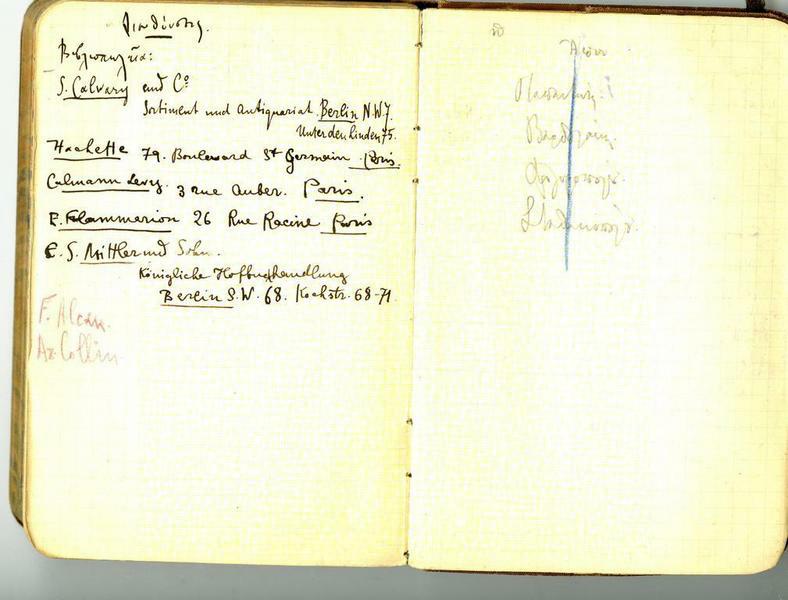 Διευθύνσεις.
Βιβλιοπωλεῖα:
S. Calvary und Cº
Sortiment und Antiquariat. Berlin N.W.7.
Unter den Linden 75.
Hachette 79. Boulevard St Germain. Paris.
Calmann Levy. 3 rue Auber. Paris.
E. Flammarion 26 Rue Racine Paris
E. S. Mittler und Sohn.
Königliche Hofbuchhandlung
Berlin S.W. 68. Kochstr. 68-71.
F. Alcan.
Ar. Collin